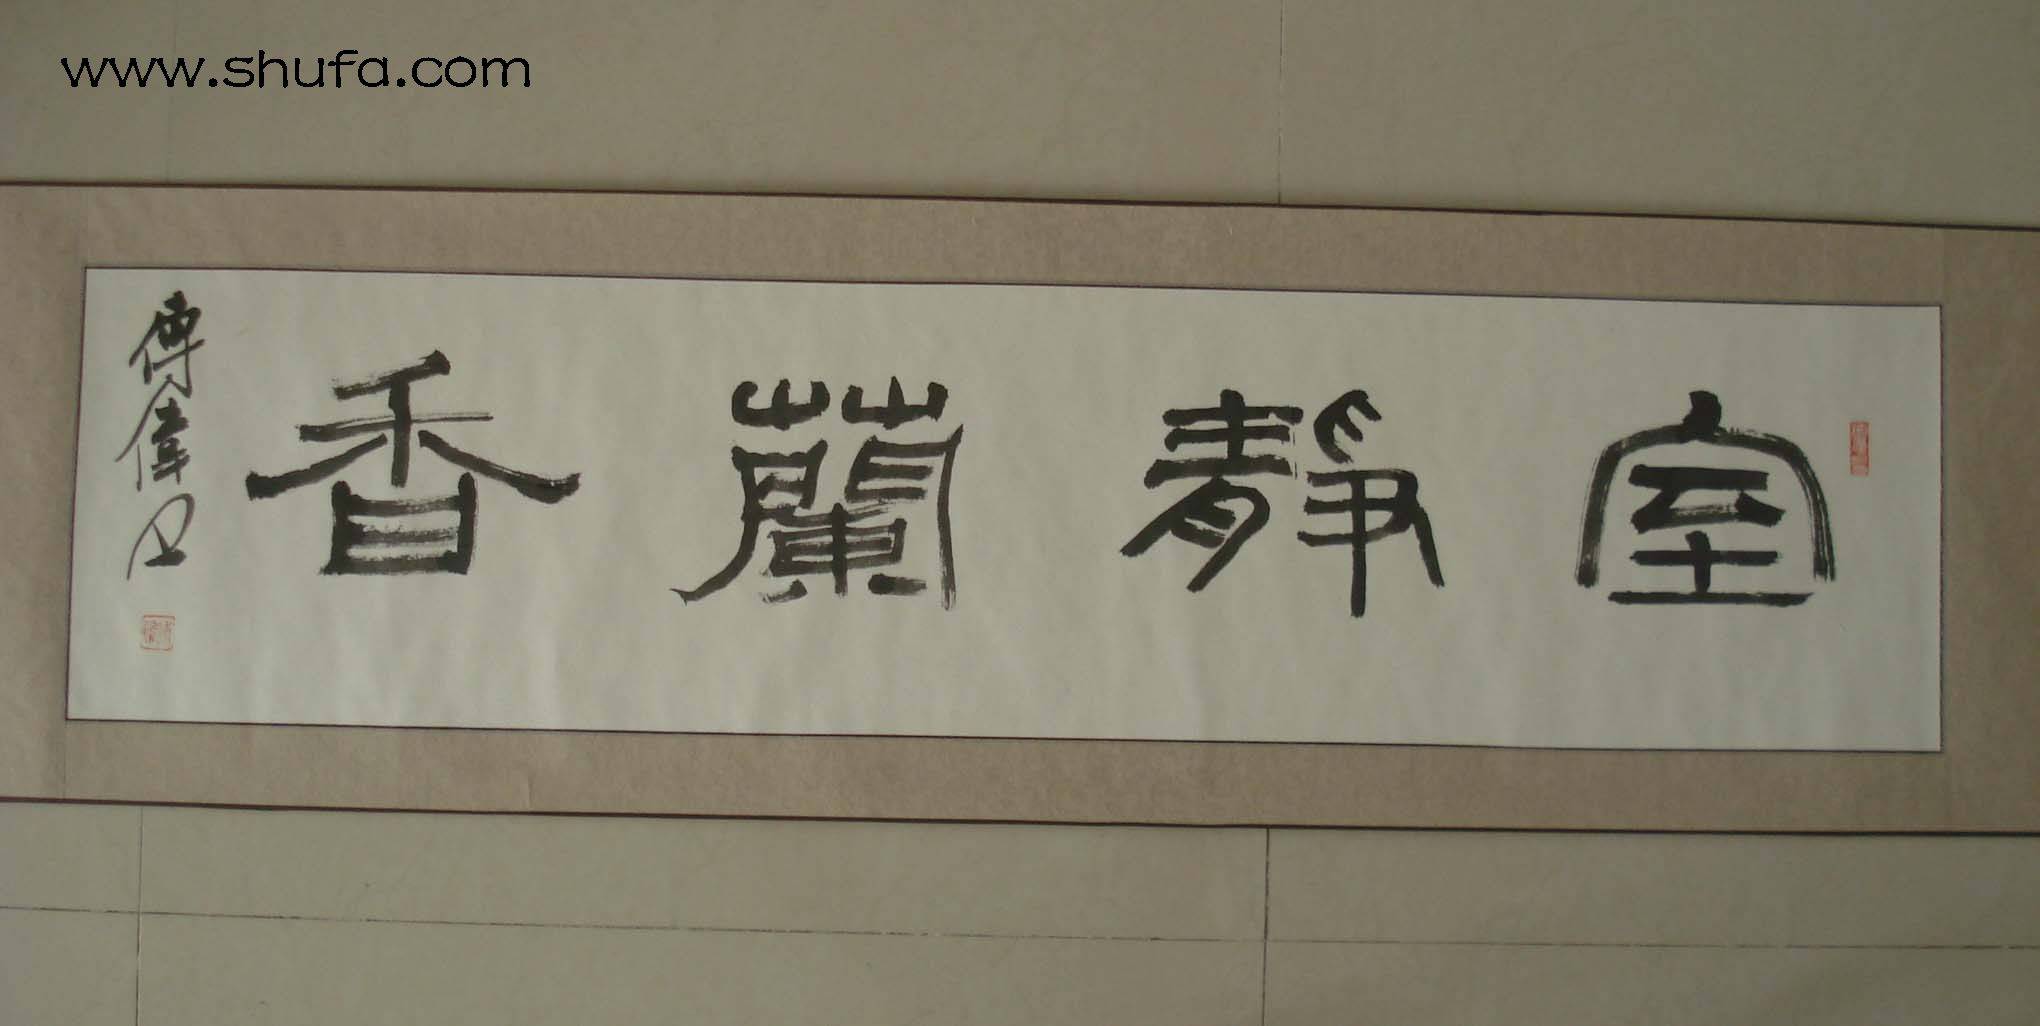 www.shufa.com
室靜蘭香
傅偉書